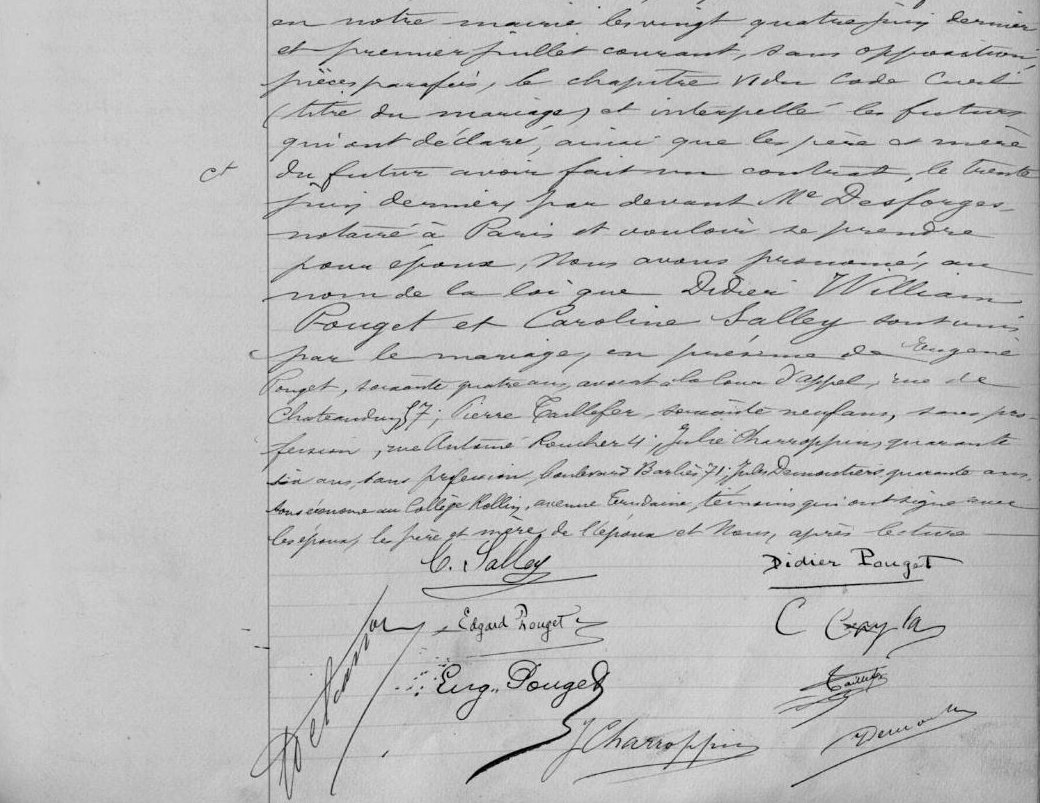 en notre mairie les vingt quatre juin dernier
et premier juillet courant, sans opposition,
pièces parafées, le chapitre VI du Code Civil
(titre du mariage) et interpellé les futurs
qui ont déclaré, ainsi que les père et mère
ct
du futur avoir fait un contrat, le trente
juin dernier, par devant Me Desforges
notaire à Paris et vouloir se prendre
pour époux, Nous avons prononcé, au
nom de la loi que Didier William
Pouget et Caroline Salley sont unis
par le mariage, en présence de Eugène
Pouget, soixante quatre ans, avocat à la Cour d'appel, rue de
Chateaudun 57; Pierre Taillefer, soixante neuf ans, sans pro-
fession, rue Antoine Roucher 4; Julie Charroppin, quarante
six ans sans profession, boulevard Barbès 71; Jules Demoutiers quarante ans,
sous économe au Collège Rollin, avenue Trudaine, témoins qui ont signé avec
les époux, les père et mère de l'époux et Nous, après lecture
C. Salley
Didier Pouget
Edgard Pouget
C
Eug. Pouget
J Charroppin